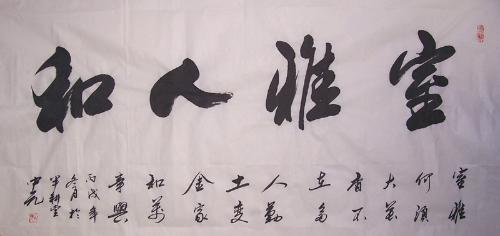 室雅人和
室雅
何須
大花
香不
在多
人勤
土变
金家
和萬
事興
丙戌年
冬月於
半耕堂